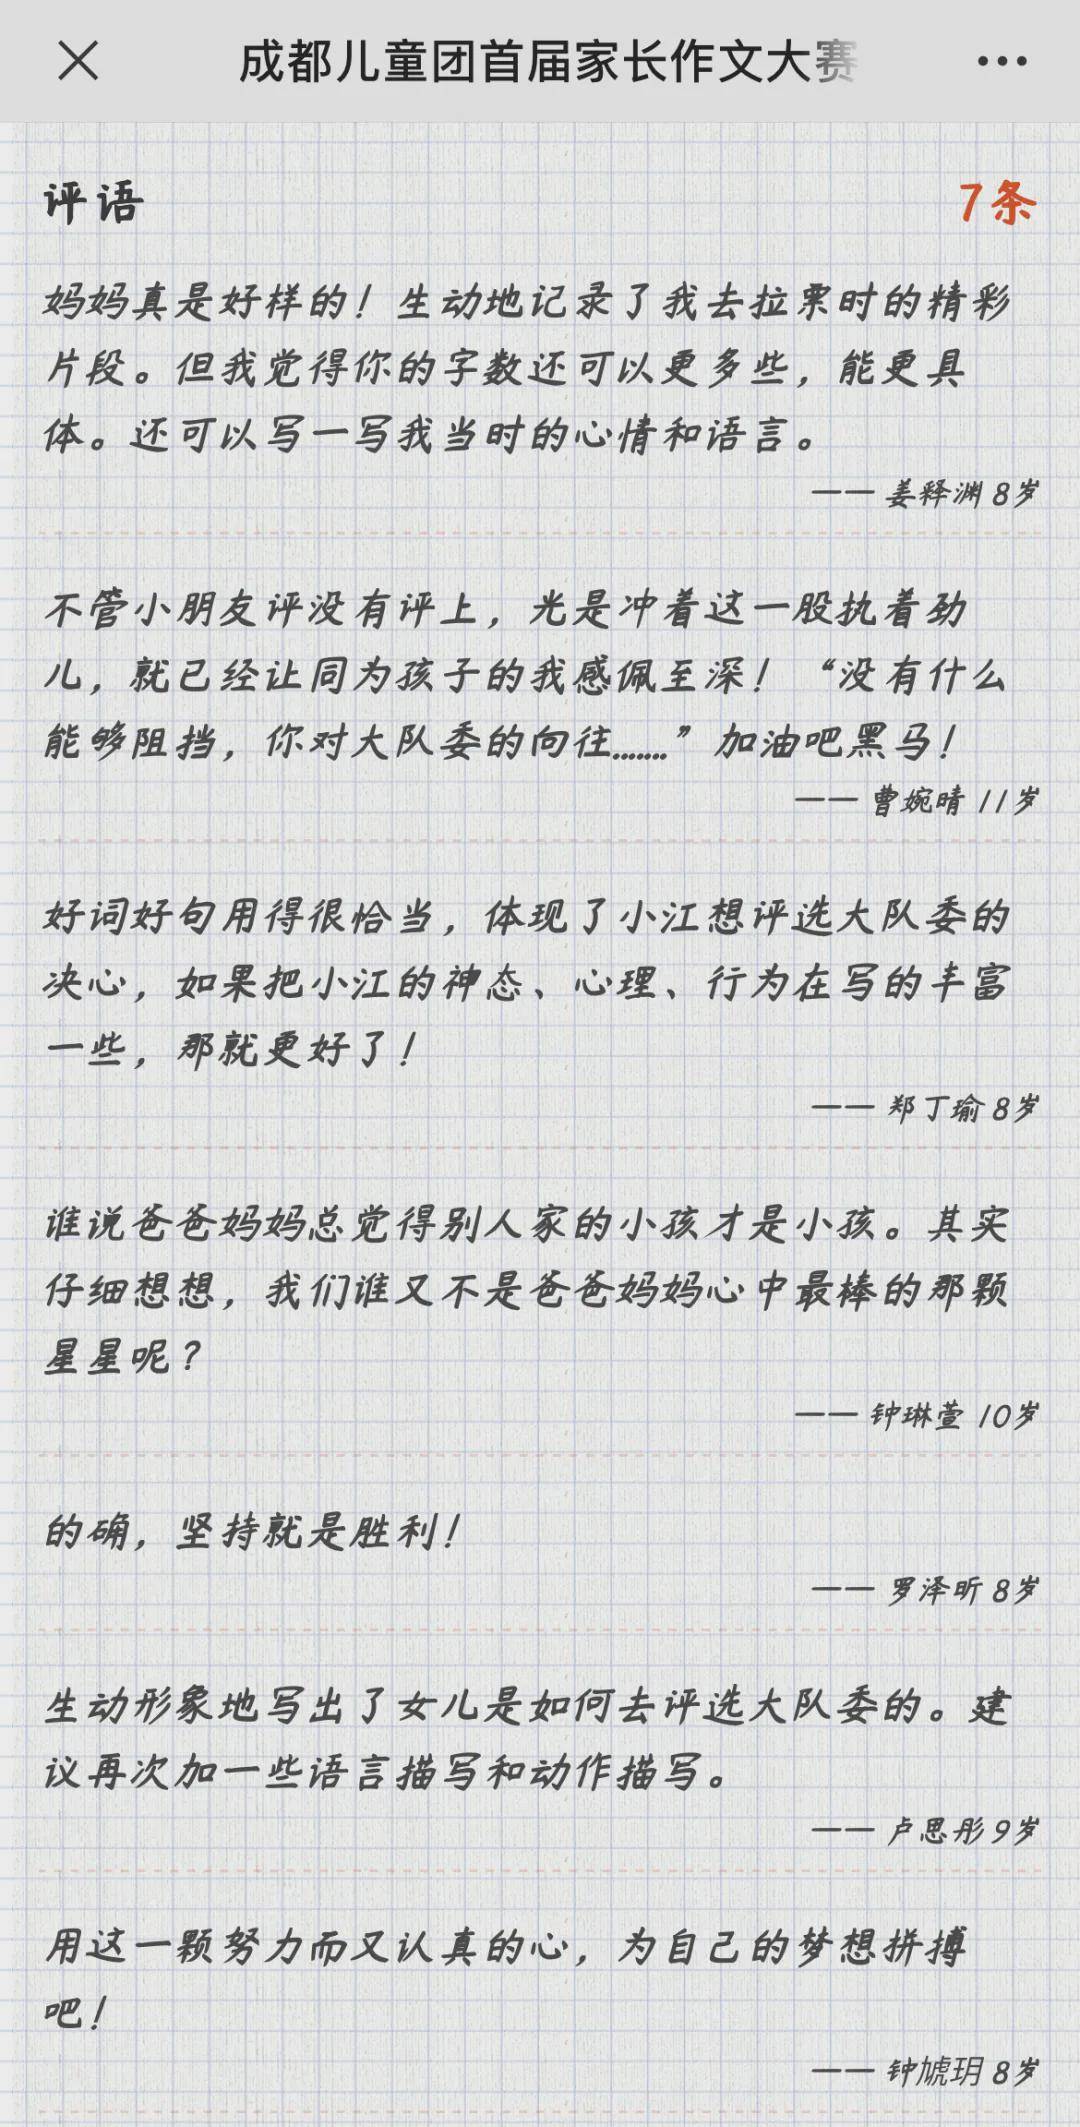 成都儿童团首届家长作文大赛
评语
7条
妈妈真是好样的！生动地记录了我去拉票时的精彩
片段。但我觉得你的字数还可以更多些，能更具
体。还可以写一写我当时的心情和语言。
—— 姜释渊 8岁
不管小朋友评没有评上，光是冲着这一股执着劲
儿，就已经让同为孩子的我感佩至深！“没有什么
能够阻挡，你对大队委的向往……”加油吧黑马！
—— 曹婉晴 11岁
好词好句用得很恰当，体现了小江想评选大队委的
决心，如果把小江的神态、心理、行为在写的丰富
一些，那就更好了！
—— 郑丁瑜 8岁
谁说爸爸妈妈总觉得别人家的小孩才是小孩。其实
仔细想想，我们谁又不是爸爸妈妈心中最棒的那颗
星星呢？
—— 钟琳萱 10岁
的确，坚持就是胜利！
—— 罗泽昕 8岁
生动形象地写出了女儿是如何去评选大队委的。建
议再次加一些语言描写和动作描写。
—— 卢思彤 9岁
用这一颗努力而又认真的心，为自己的梦想拼搏
吧！
—— 钟虓玥 8岁